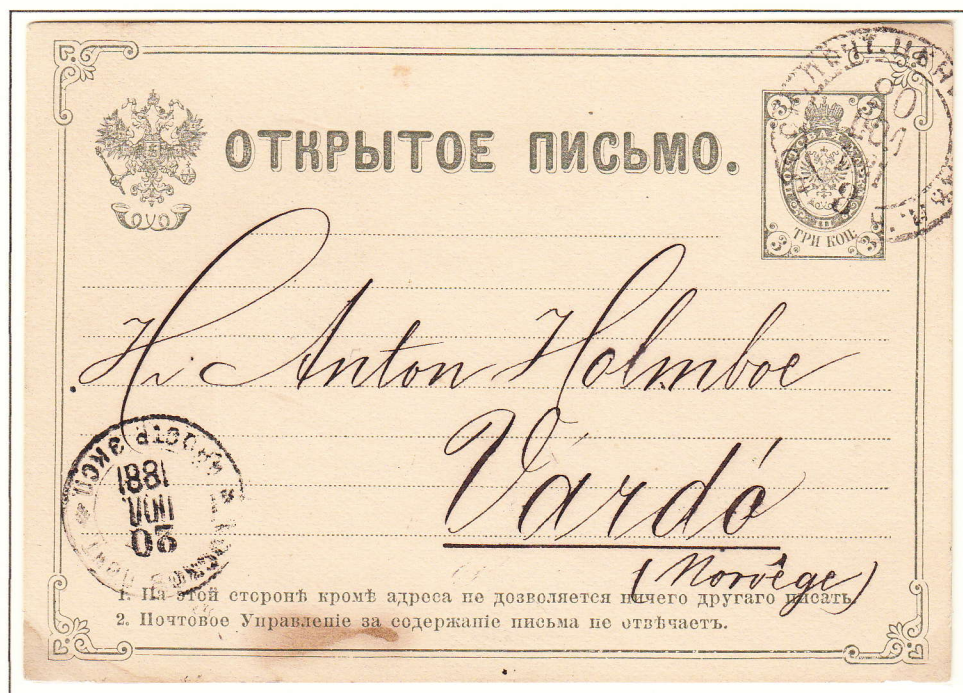 ОТКРЫТОЕ ПИСЬМО.
3 3
ТРИ КОП.
3 3
H. Anton Holmboe
Vardö
(Norvège)
ЭКСП.
1881
ІЮЛ
20
1. На этой сторонѣ кромѣ адреса не дозволяется ничего другаго писать.
2. Почтовое Управленіе за содержаніе письма не отвѣчаетъ.